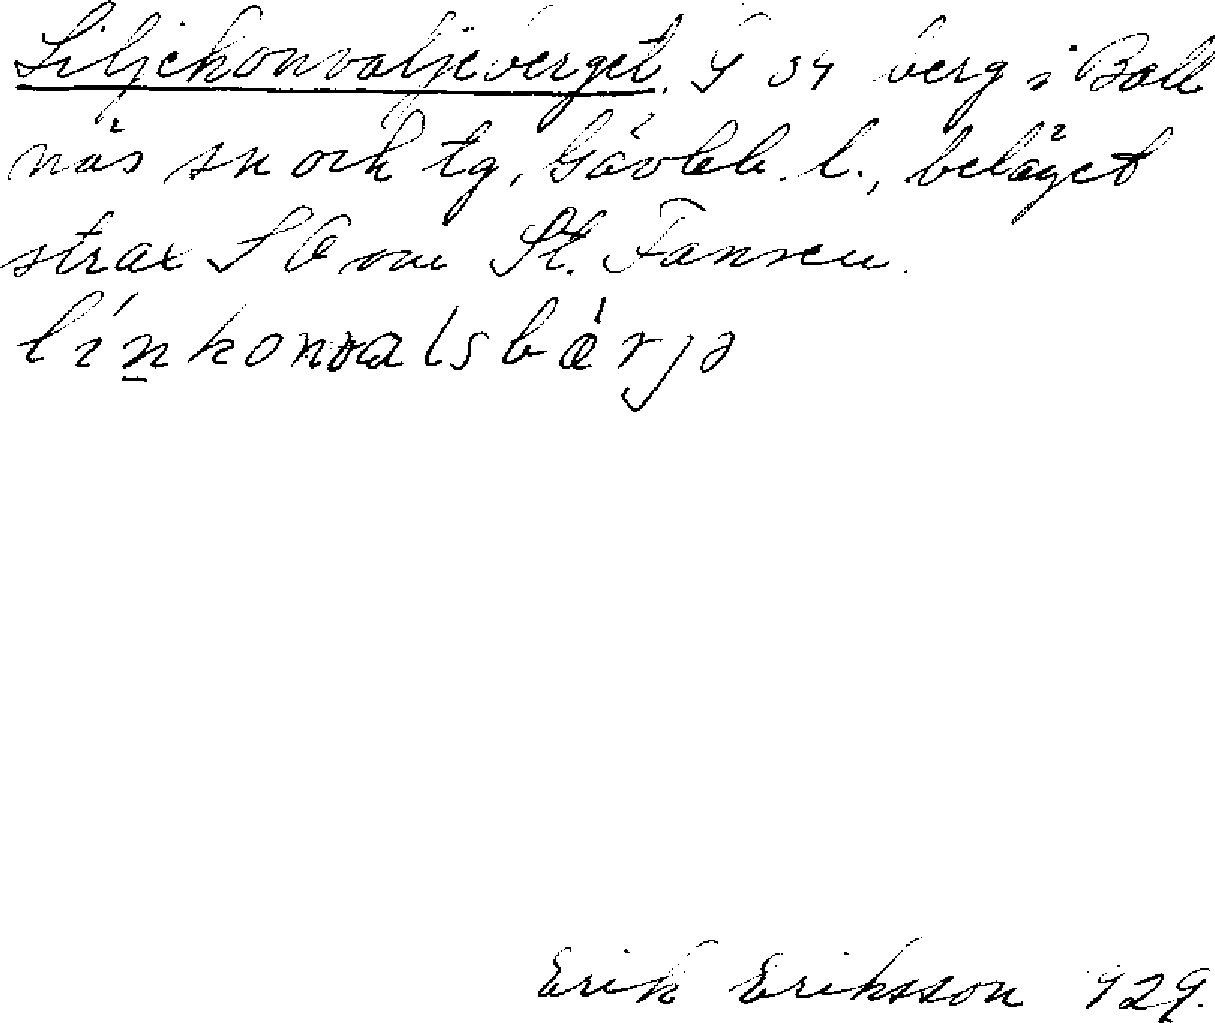 Liljekonvaljeberget. Y 34 berg i Boll
näs sn och tg, Gävleb. l., beläget
strax S O om St. Fansen.
línkonvalsbǽrjə
Erik Eriksson 1929.